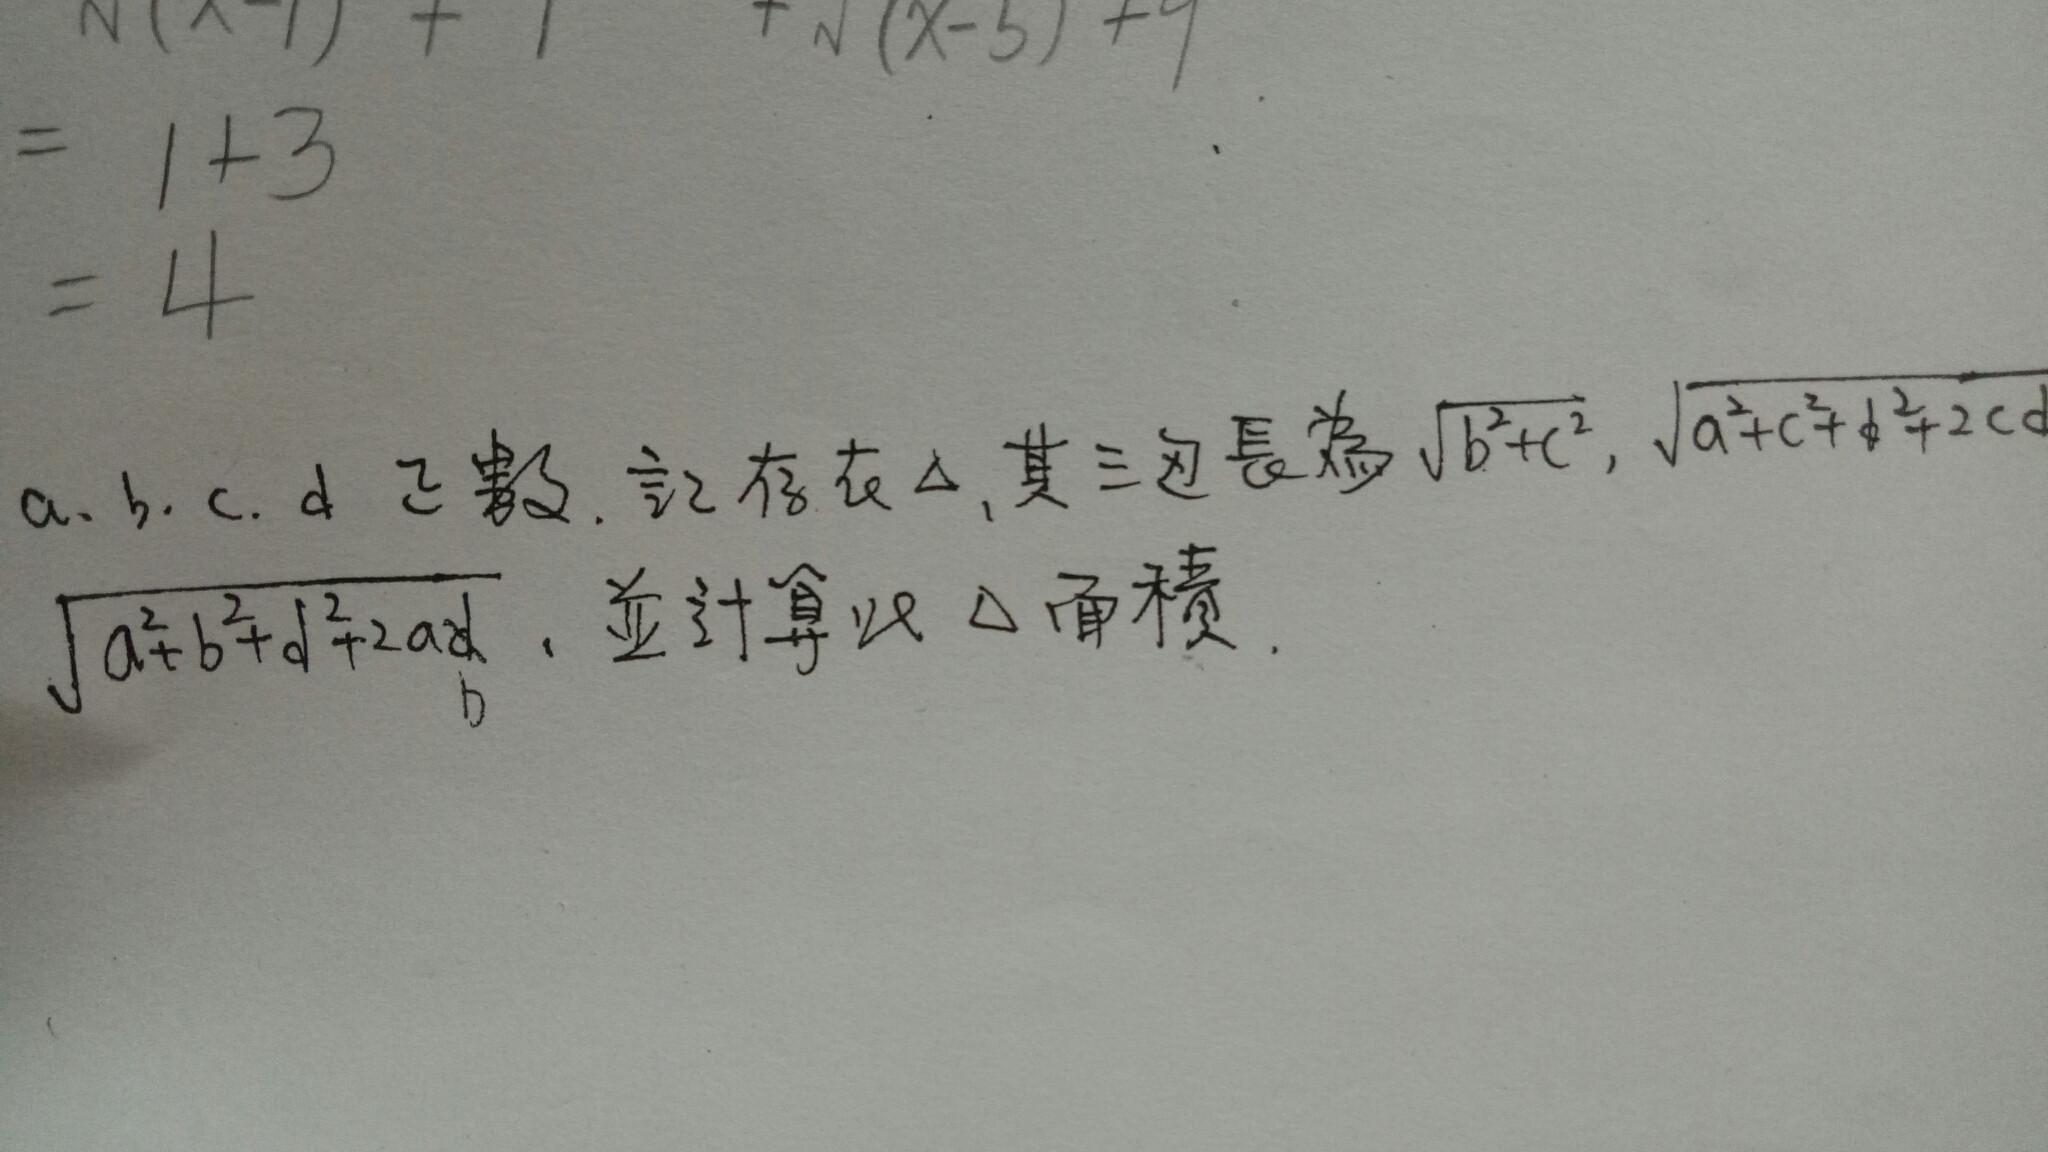 √(x-1) + 1 + √(x-5) + 9
= 1+3
= 4
a、b、c、d 正數、証存在△、其三边長為 √b²+c², √a²+c²+d²+2cd
√a²+b²+d²+2ad b 、並計算此△面積.